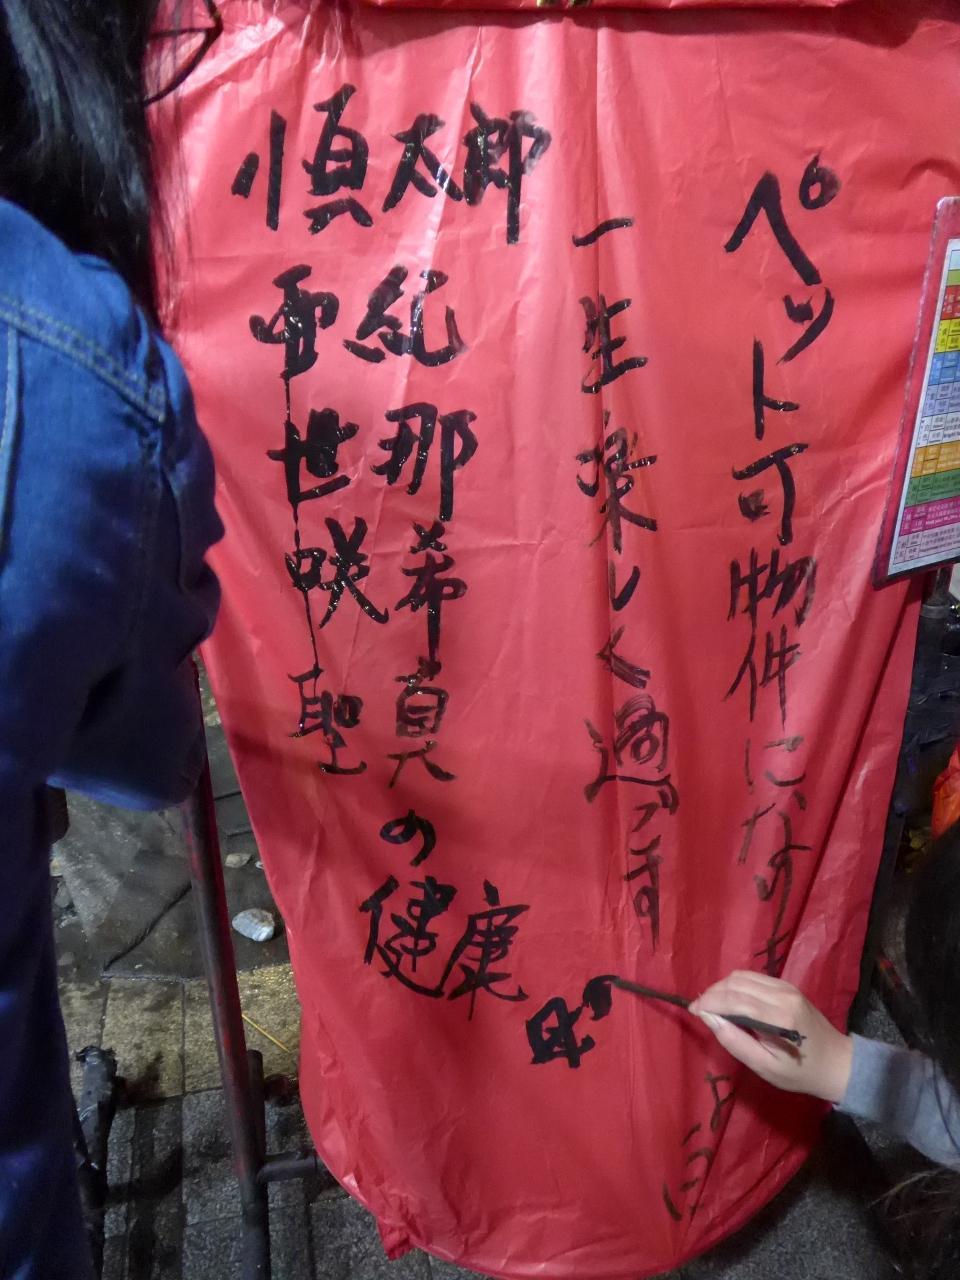 ペット可物件になりますように
一生楽しく過ごす
順太郎
紀那希真の健康
雫世咲聖